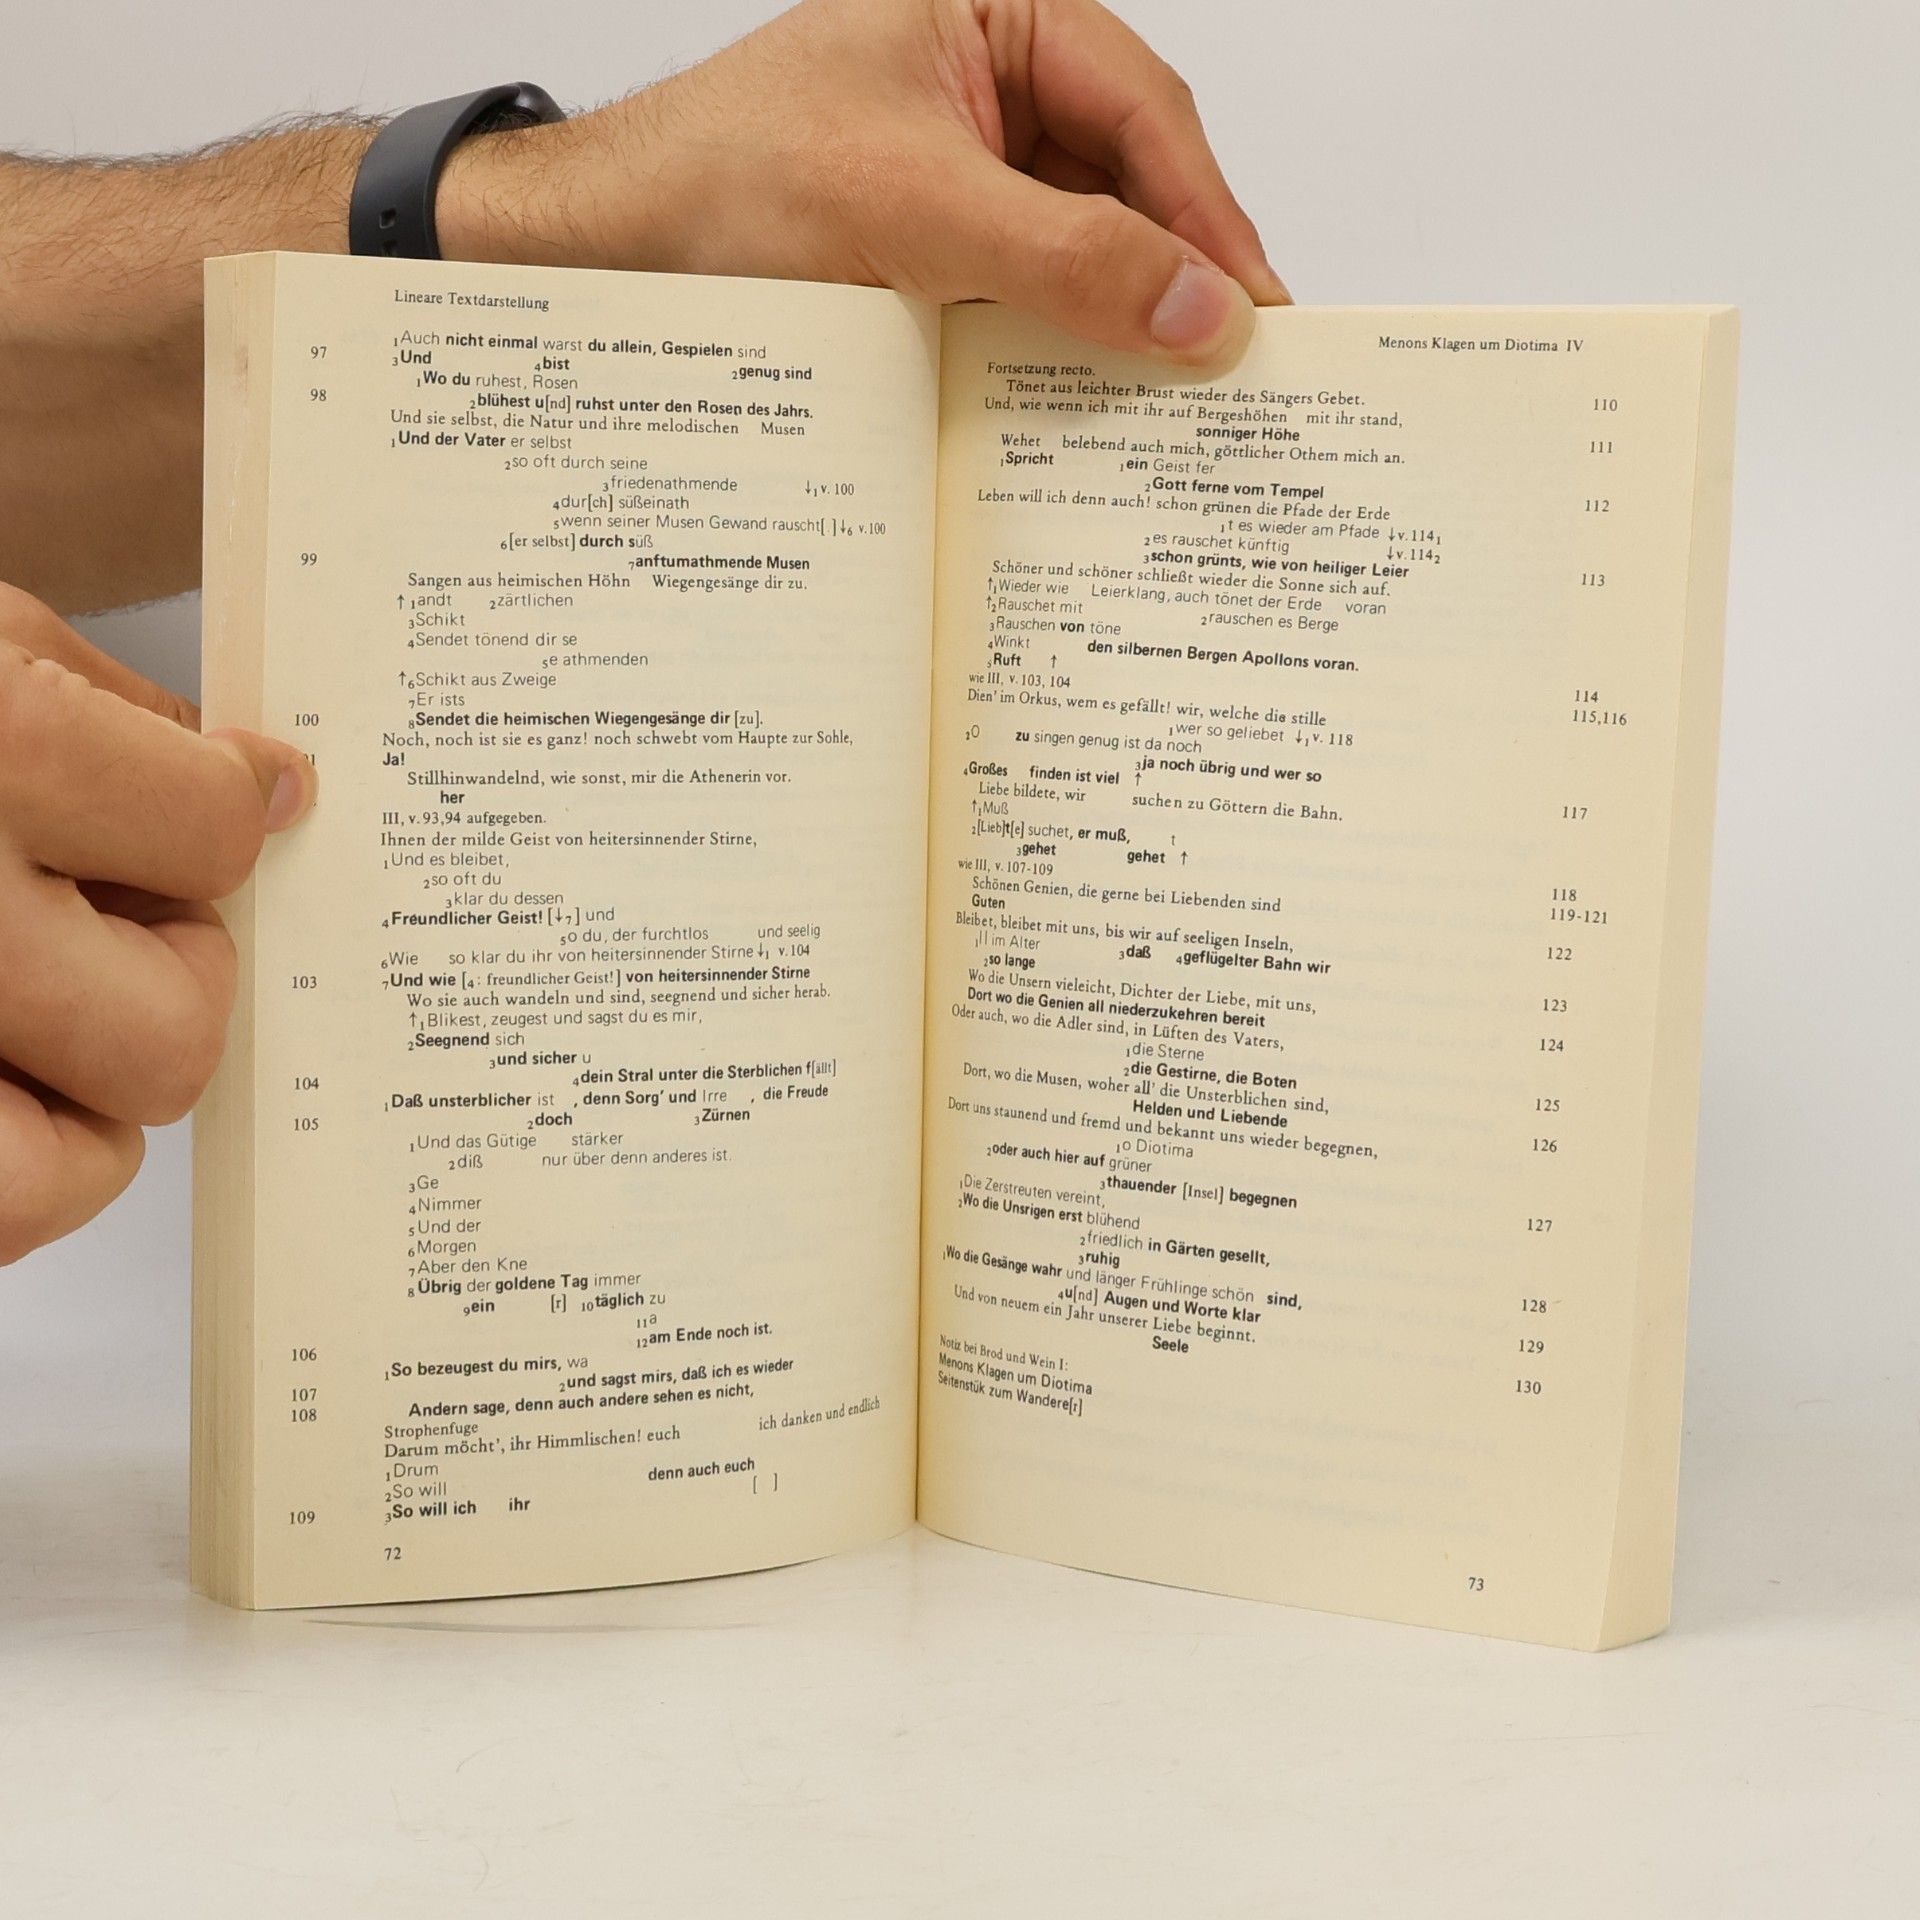 Lineare Textdarstellung
97 ₁Auch nicht einmal warst du allein, Gespielen sind
₃Und ₄bist ₂genug sind
₁Wo du ruhest, Rosen
98 ₂blühest u[nd] ruhst unter den Rosen des Jahrs.
Und sie selbst, die Natur und ihre melodischen Musen
₁Und der Vater er selbst
₂so oft durch seine
₃friedenathmende ↓₁ v. 100
₄dur[ch] süßeinath
₅wenn seiner Musen Gewand rauscht[.] ↓₆ v.100
₆[er selbst] durch süß
99 ₇anftumathmende Musen
Sangen aus heimischen Höhn Wiegengesänge dir zu.
↑₁andt ₂zärtlichen
₃Schikt
₄Sendet tönend dir se
₅e athmenden
↑₆Schikt aus Zweige
₇Er ists
100 ₈Sendet die heimischen Wiegengesänge dir [zu].
Noch, noch ist sie es ganz! noch schwebt vom Haupte zur Sohle,
Ja!
Stillhinwandelnd, wie sonst, mir die Athenerin vor.
her
III, v. 93,94 aufgegeben.
Ihnen der milde Geist von heitersinnender Stirne,
₁Und es bleibet,
₂so oft du
₃klar du dessen
₄Freundlicher Geist! [↓₇] und
₅o du, der furchtlos und seelig
₆Wie so klar du ihr von heitersinnender Stirne ↓₁ v. 104
103 ₇Und wie [₄: freundlicher Geist!] von heitersinnender Stirne
Wo sie auch wandeln und sind, seegnend und sicher herab.
↑₁Blikest, zeugest und sagst du es mir,
₂Seegnend sich
₃und sicher u
104 ₄dein Stral unter die Sterblichen f[ällt]
₁Daß unsterblicher ist , denn Sorg' und Irre , die Freude
105 ₂doch ₃Zürnen
₁Und das Gütige stärker
₂diß nur über denn anderes ist.
₃Ge
₄Nimmer
₅Und der
₆Morgen
₇Aber den Kne
₈Übrig der goldene Tag immer
₉ein [r] ₁₀täglich zu
₁₁a
106 ₁₂am Ende noch ist.
₁So bezeugest du mirs, wa
107 ₂und sagst mirs, daß ich es wieder
108 Andern sage, denn auch andere sehen es nicht,
Strophenfuge
Darum möcht', ihr Himmlischen! euch ich danken und endlich
₁Drum denn auch euch
₂So will [ ]
109 ₃So will ich ihr
72
Menons Klagen um Diotima IV
Fortsetzung recto.
Tönet aus leichter Brust wieder des Sängers Gebet. 110
Und, wie wenn ich mit ihr auf Bergeshöhen mit ihr stand,
sonniger Höhe 111
Wehet belebend auch mich, göttlicher Othem mich an.
₁Spricht ₁ein Geist fer
₂Gott ferne vom Tempel 112
Leben will ich denn auch! schon grünen die Pfade der Erde
₁t es wieder am Pfade ↓v. 114₁
₂es rauschet künftig ↓v. 114₂
₃schon grünts, wie von heiliger Leier 113
Schöner und schöner schließt wieder die Sonne sich auf.
↑₁Wieder wie Leierklang, auch tönet der Erde voran
↑₂Rauschet mit ₂rauschen es Berge
₃Rauschen von töne
₄Winkt den silbernen Bergen Apollons voran.
₅Ruft ↑ 114
wie III, v. 103, 104 115,116
Dien' im Orkus, wem es gefällt! wir, welche die stille
₁wer so geliebet ↓₁ v. 118
₂O zu singen genug ist da noch
₃ja noch übrig und wer so
₄Großes finden ist viel ↑ 117
Liebe bildete, wir suchen zu Göttern die Bahn.
↑₁Muß
₂[Lieb]t[e] suchet, er muß, ↑
₃gehet gehet ↑ 118
wie III, v. 107-109 119-121
Schönen Genien, die gerne bei Liebenden sind
Guten 122
Bleibet, bleibet mit uns, bis wir auf seeligen Inseln,
₁ll im Alter
₂so lange ₃daß ₄geflügelter Bahn wir 123
Wo die Unsern vieleicht, Dichter der Liebe, mit uns,
Dort wo die Genien all niederzukehren bereit 124
Oder auch, wo die Adler sind, in Lüften des Vaters,
₁die Sterne
₂die Gestirne, die Boten 125
Dort, wo die Musen, woher all' die Unsterblichen sind,
Helden und Liebende 126
Dort uns staunend und fremd und bekannt uns wieder begegnen,
₁o Diotima
₂oder auch hier auf grüner
₃thauender [Insel] begegnen 127
₁Die Zerstreuten vereint,
₂Wo die Unsrigen erst blühend
₂friedlich in Gärten gesellt,
₃ruhig 128
₁Wo die Gesänge wahr und länger Frühlinge schön sind,
₄u[nd] Augen und Worte klar 129
Und von neuem ein Jahr unserer Liebe beginnt.
Seele 130
Notiz bei Brod und Wein I:
Menons Klagen um Diotima
Seitenstük zum Wandere[r]
73